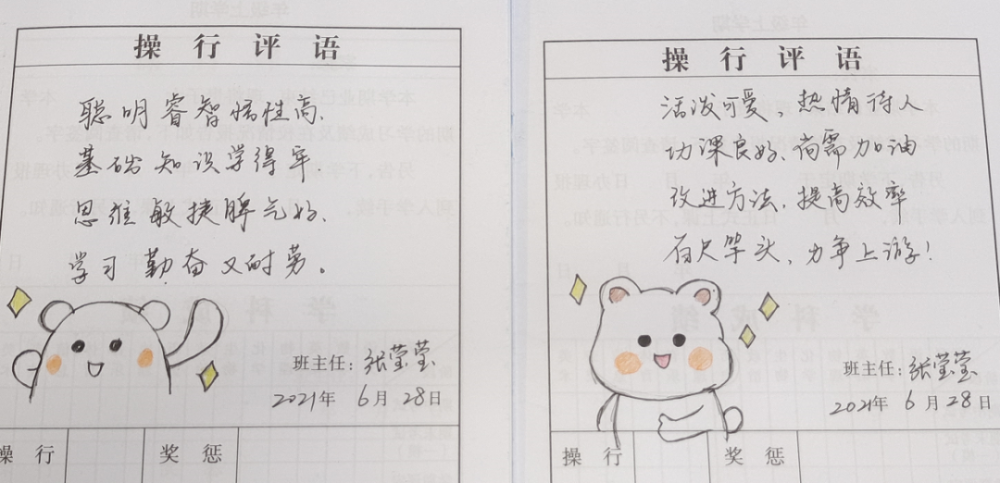 操行评语
聪明睿智悟性高、
基础知识学得牢、
思维敏捷脾气好、
学习勤奋又耐劳。
班主任：张莹莹
2021年 6月28日
操行 奖惩
操行评语
活泼可爱、热情待人
功课良好、尚需加油
改进方法、提高效率
百尺竿头、力争上游！
班主任：张莹莹
2021年 6月28日
操行 奖惩